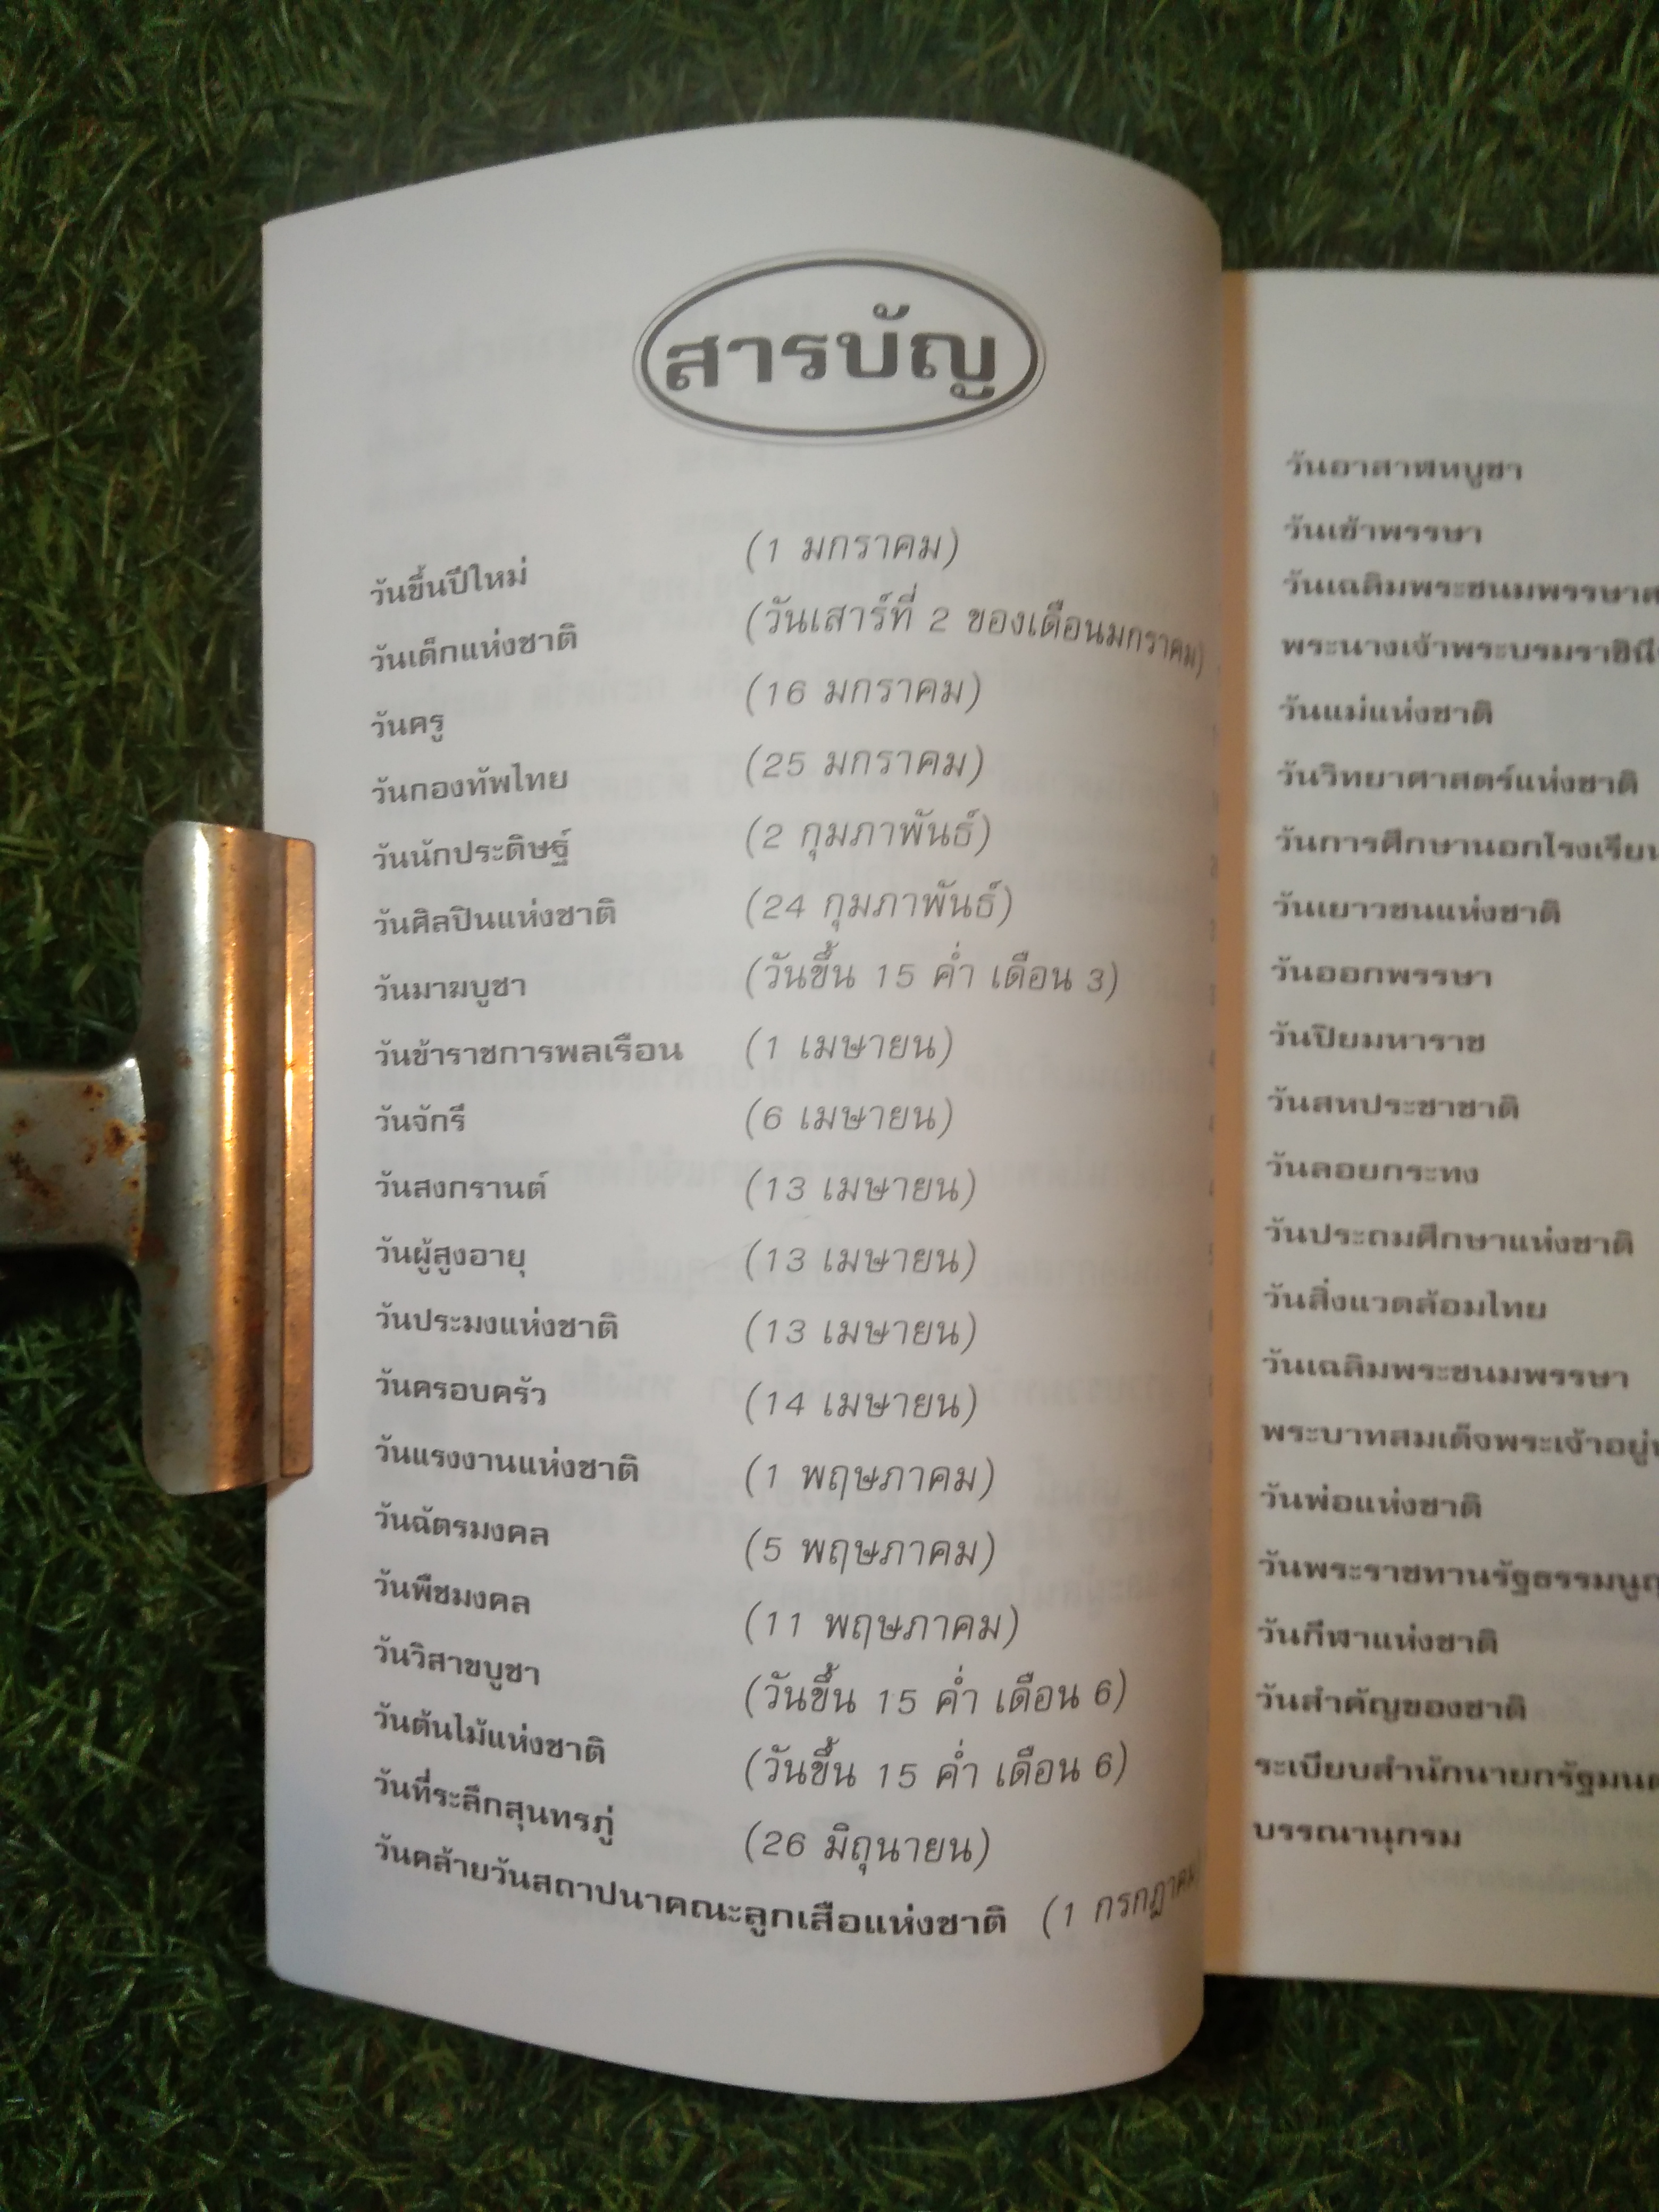 สารบัญ
วันขึ้นปีใหม่ (1 มกราคม)
วันเด็กแห่งชาติ (วันเสาร์ที่ 2 ของเดือนมกราคม)
วันครู (16 มกราคม)
วันกองทัพไทย (25 มกราคม)
วันนักประดิษฐ์ (2 กุมภาพันธ์)
วันศิลปินแห่งชาติ (24 กุมภาพันธ์)
วันมาฆบูชา (วันขึ้น 15 ค่ำ เดือน 3)
วันข้าราชการพลเรือน (1 เมษายน)
วันจักรี (6 เมษายน)
วันสงกรานต์ (13 เมษายน)
วันผู้สูงอายุ (13 เมษายน)
วันประมงแห่งชาติ (13 เมษายน)
วันครอบครัว (14 เมษายน)
วันแรงงานแห่งชาติ (1 พฤษภาคม)
วันฉัตรมงคล (5 พฤษภาคม)
วันพืชมงคล (11 พฤษภาคม)
วันวิสาขบูชา (วันขึ้น 15 ค่ำ เดือน 6)
วันต้นไม้แห่งชาติ (วันขึ้น 15 ค่ำ เดือน 6)
วันที่ระลึกสุนทรภู่ (26 มิถุนายน)
วันคล้ายวันสถาปนาคณะลูกเสือแห่งชาติ (1 กรกฎาคม)
วันอาสาฬหบูชา
วันเข้าพรรษา
วันเฉลิมพระชนมพรรษาส
พระนางเจ้าพระบรมราชินี
วันแม่แห่งชาติ
วันวิทยาศาสตร์แห่งชาติ
วันการศึกษานอกโรงเรียน
วันเยาวชนแห่งชาติ
วันออกพรรษา
วันปิยมหาราช
วันสหประชาชาติ
วันลอยกระทง
วันประถมศึกษาแห่งชาติ
วันสิ่งแวดล้อมไทย
วันเฉลิมพระชนมพรรษา
พระบาทสมเด็จพระเจ้าอยู่
วันพ่อแห่งชาติ
วันพระราชทานรัฐธรรมนูญ
วันกีฬาแห่งชาติ
วันสำคัญของชาติ
ระเบียบสำนักนายกรัฐมนต
บรรณานุกรม